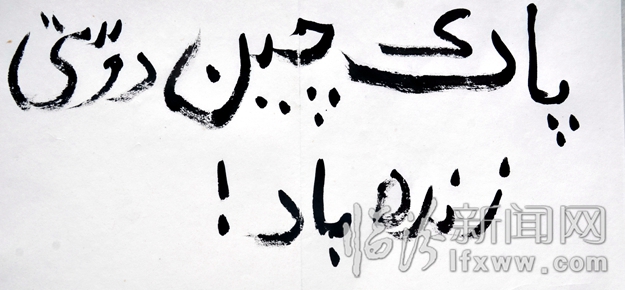 پاک چین دوستی
زندہ باد !
临汾新闻网
lfxww.com